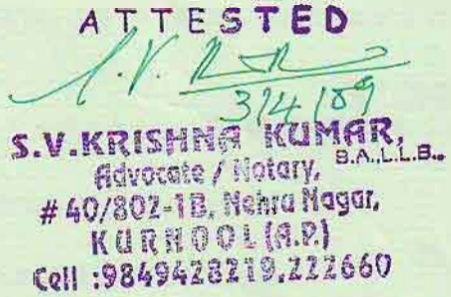 ATTESTED
S.V. 
3/4/09
S.V.KRISHNA KUMAR,
B.A.,L.L.B.,
Advocate / Notary,
# 40/802-1B, Nehru Nagar,
KURNOOL (A.P.)
Cell :9849428219,222660